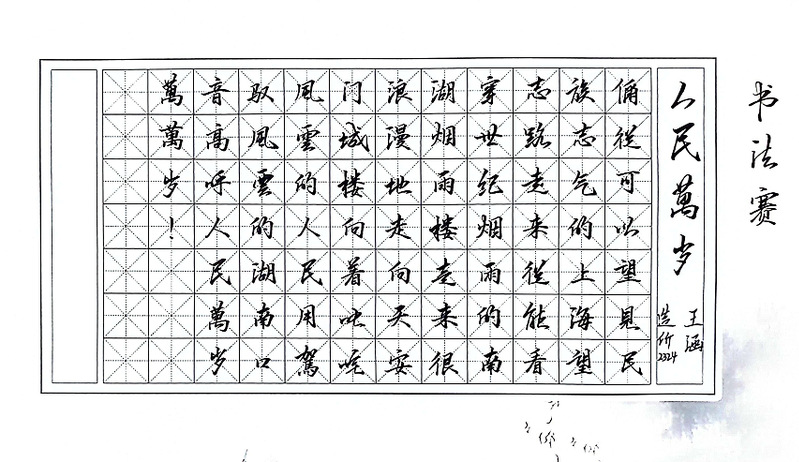 书法赛
人民萬岁
王涵
造价2324
俑從可以望見民
族志气的上海望
志路走来從能看
穿世纪烟雨的南
湖烟雨楼走来很
浪漫地走向天安
门城楼向着叱咤
風雲的人民用駕
驭風雲的湖南口
音高呼人民萬岁
萬萬岁！